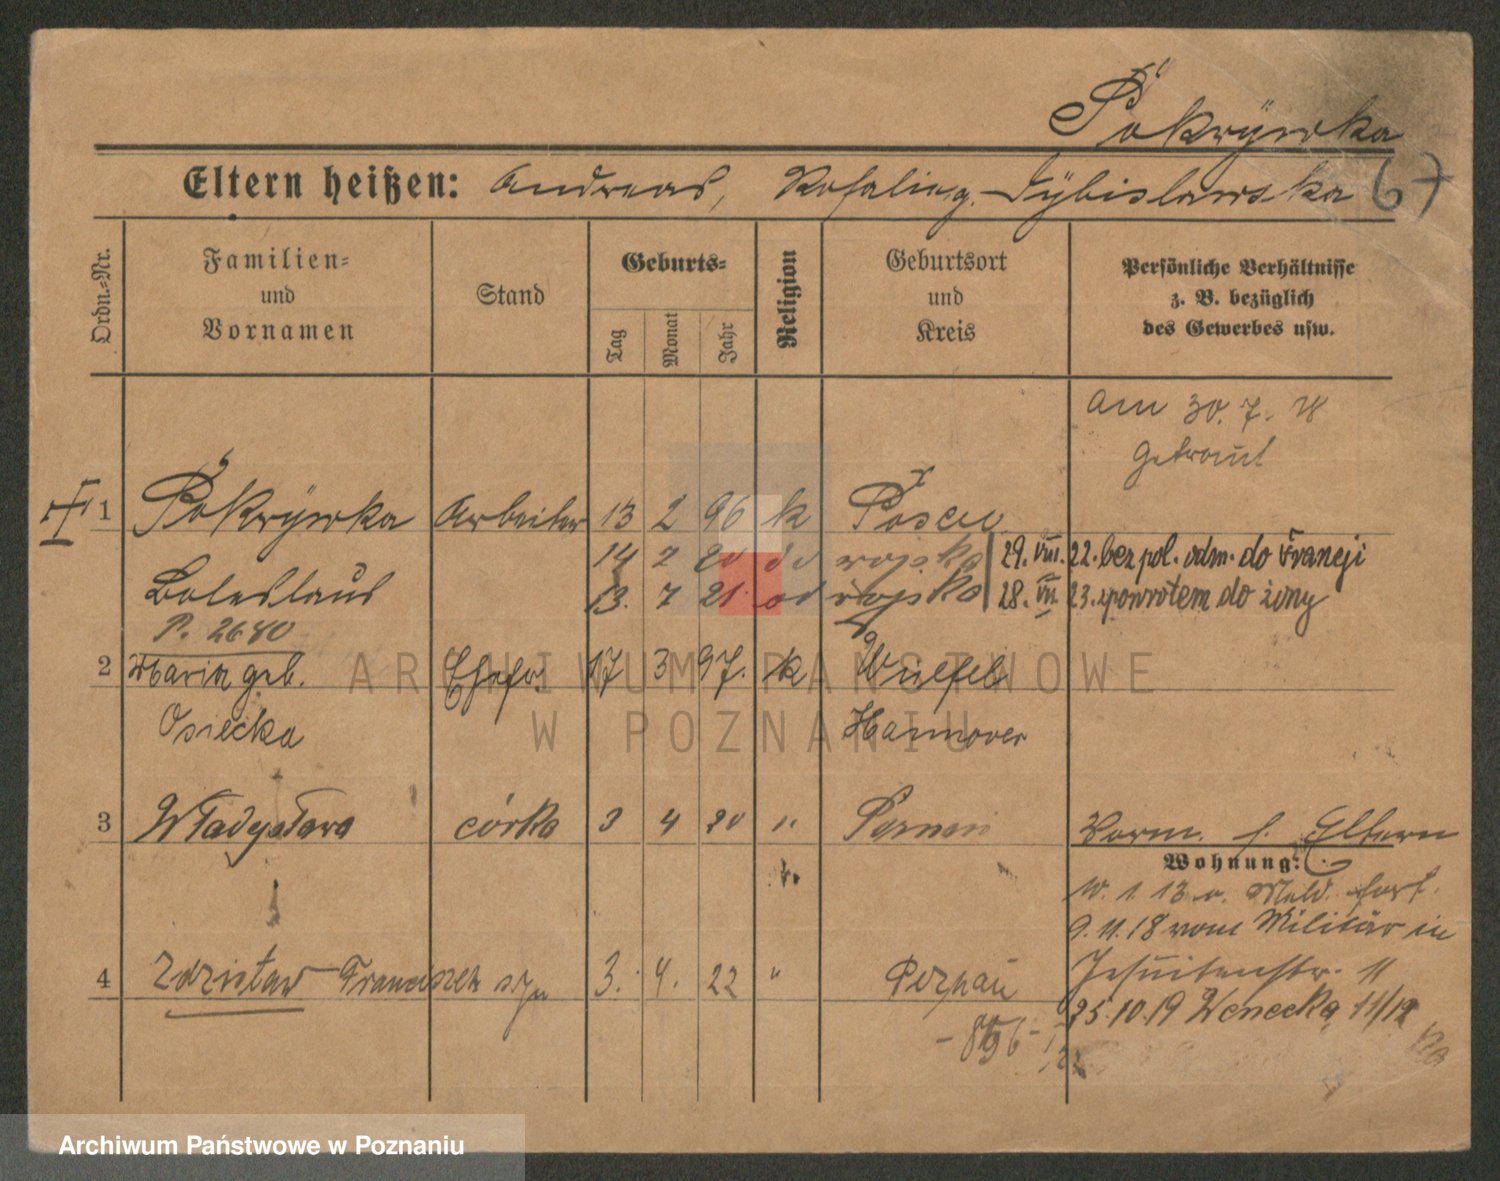 Pokrywka
Eltern heißen: Andreas, Rosalie g. Dybislawska 67
Ordn.-Nr.
Familien-
und
Vornamen
Stand
Geburts-
Tag
Monat
Jahr
Religion
Geburtsort
und
Kreis
Persönliche Verhältnisse
z. B. bezüglich
des Gewerbes usw.
am 30. 7. 18
getraut
1 Pokrywka Arbeiter 13 2 96 k Posen
14 2 20 do wojska 29. VIII. 22. bez pol. odm. do Francji
Boleslaus 13. 7 21. od wojska 28. VII. 23. zpowrotem do żony
P. 2680
2 Maria geb. Ehefr. 17 3 97. k Wülfel
Osiecka Hannover
3 Władysława córka 3 4 20 " Poznań
Vorm. s. Eltern
Wohnung:
W. 1. 13 Meld. fort.
9. 11. 18 vom Militär in
4 Zdzisław Franciszek syn 3. 4. 22 " Poznań
Jesuitenstr. 11
25. 10. 19 Wenecka 11/12
ARCHIWUM PAŃSTWOWE
W POZNANIU
Archiwum Państwowe w Poznaniu